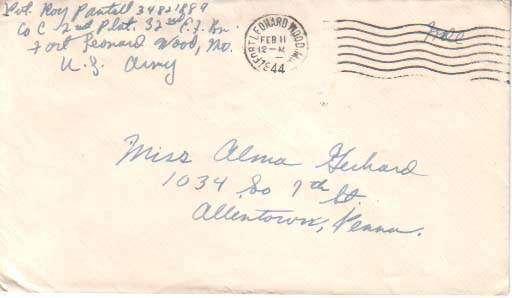 Pvt. Roy Pantell 34821889
Co C 2nd Plat. 32nd Bn.
Fort Leonard Wood, Mo.
U.S. Army
FORT LEONARD WOOD, MO.
FEB 11
12 - M
1944
Free
Miss Alma Gerhard
1034 So 7th St.
Allentown, Penna.